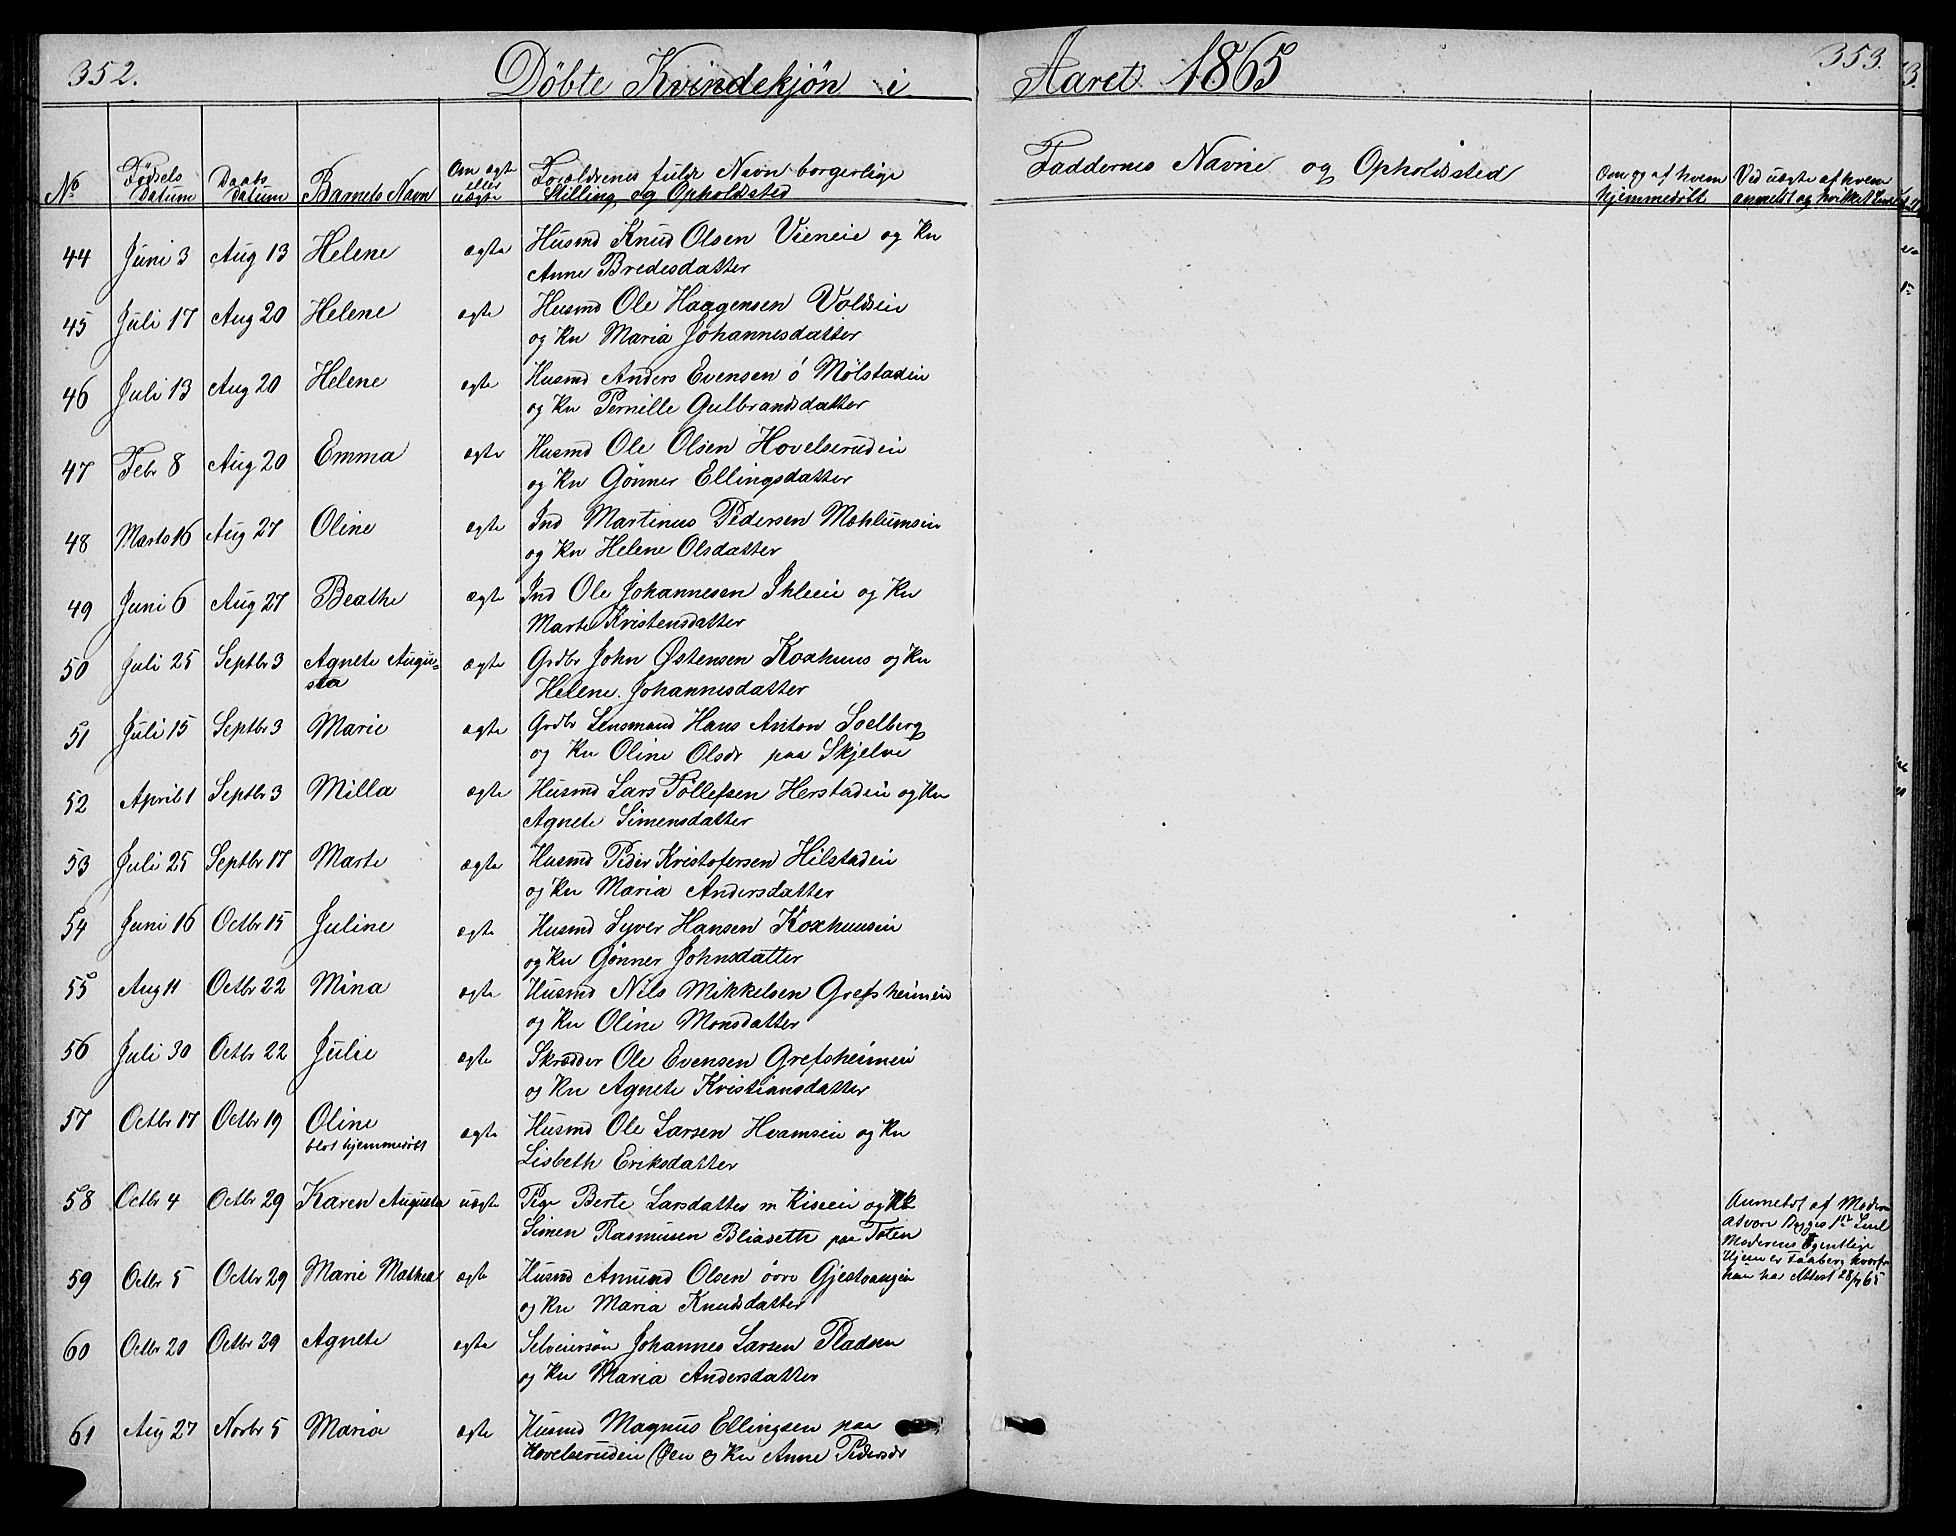 352.
Döbte Kvindekjön i
Aaret 1865
353.
No
Födsels Datum
Daabs Datum
Barnets Navn
Om ægte eller uægte
Forældrenes fulde Navn borgerlige Stilling og Opholdsted
Faddernes Navne og Opholdsted
Om og af hvem hjemmedöbt
Ved uægte af hvem anmeldt og hvilket
44 Juni 3 Aug 13 Helene ægte Husmd Knud Olsen Vieneie og Kn
Anne Bredesdatter
45 Juli 17 Aug 20 Helene ægte Husmd Ole Haagensen Voldeie
og Kn Maria Johannesdatter
46 Juli 13 Aug 20 Helene ægte Husmd Anders Evensen ö Mölstadeie
og Kn Pernille Gulbrandsdatter
47 Febr 8 Aug 20 Emma ægte Husmd Ole Olsen Hovelserudeie
og Kn Gönner Ellingsdatter
48 Marts 16 Aug 27 Oline ægte Ind Martinus Pedersen Mæhlumseie
og Kn Helene Olsdatter
49 Juni 6 Aug 27 Beathe ægte Ind Ole Johannesen Ihleeie og Kn
Marte Kristensdatter
50 Juli 25 Septbr 3 Agnete Augu-
sta ægte Grdbr John Østensen Koxhuus og Kn
Helene Johannesdatter
51 Juli 15 Septbr 3 Marie ægte Grdbr Lensmand Hans Anton Soelberg
og Kn Oline Olsdr paa Skjelve
52 April 1 Septbr 3 Milla ægte Husmd Lars Töllefsen Herstadeie og Kn
Agnete Simensdatter
53 Juli 25 Septbr 17 Marte ægte Husmd Peder Kristofersen Hilstadeie
og Kn Maria Andersdatter
54 Juni 16 Octbr 15 Juline ægte Husmd Syver Hansen Koxhuuseie
og Kn Gönner Johnsdatter
55 Aug 11 Octbr 22 Mina ægte Husmd Nils Mikkelsen Grefsheimeie
og Kn Oline Monsdatter
56 Juli 30 Octbr 22 Julie ægte Skrædder Ole Evensen Grefsheimeie
og Kn Agnete Kristiansdatter
57 Octbr 17 Octbr 19 Oline
blot hjemmedöbt ægte Husmd Ole Larsen Hvamseie og Kn
Lisbeth Eriksdatter
58 Octbr 4 Octbr 29 Karen Augusta uægte Pige Berte Larsdatter m Kiseeie og Uk
Simen Rasmusen Bliaseth paa Toten
Anmeldt af Moderen
at være Begges 1ste Leiel
Moderens Egentlige
Hjem er Faaberg hvorfra
hun har Attest 28/9 65
59 Octbr 5 Octbr 29 Marie Mathea ægte Husmd Amund Olsen övre Gjestvangeie
og Kn Maria Knudsdatter
60 Octbr 20 Octbr 29 Agnete ægte Selveiersön Johannes Larsen Pladsen
og Kn Maria Andersdatter
61 Aug 27 Novbr 5 Maria ægte Husmd Magnus Ellingsen paa
Hovelserudeie (Øen og Kn Anne Pedersdr